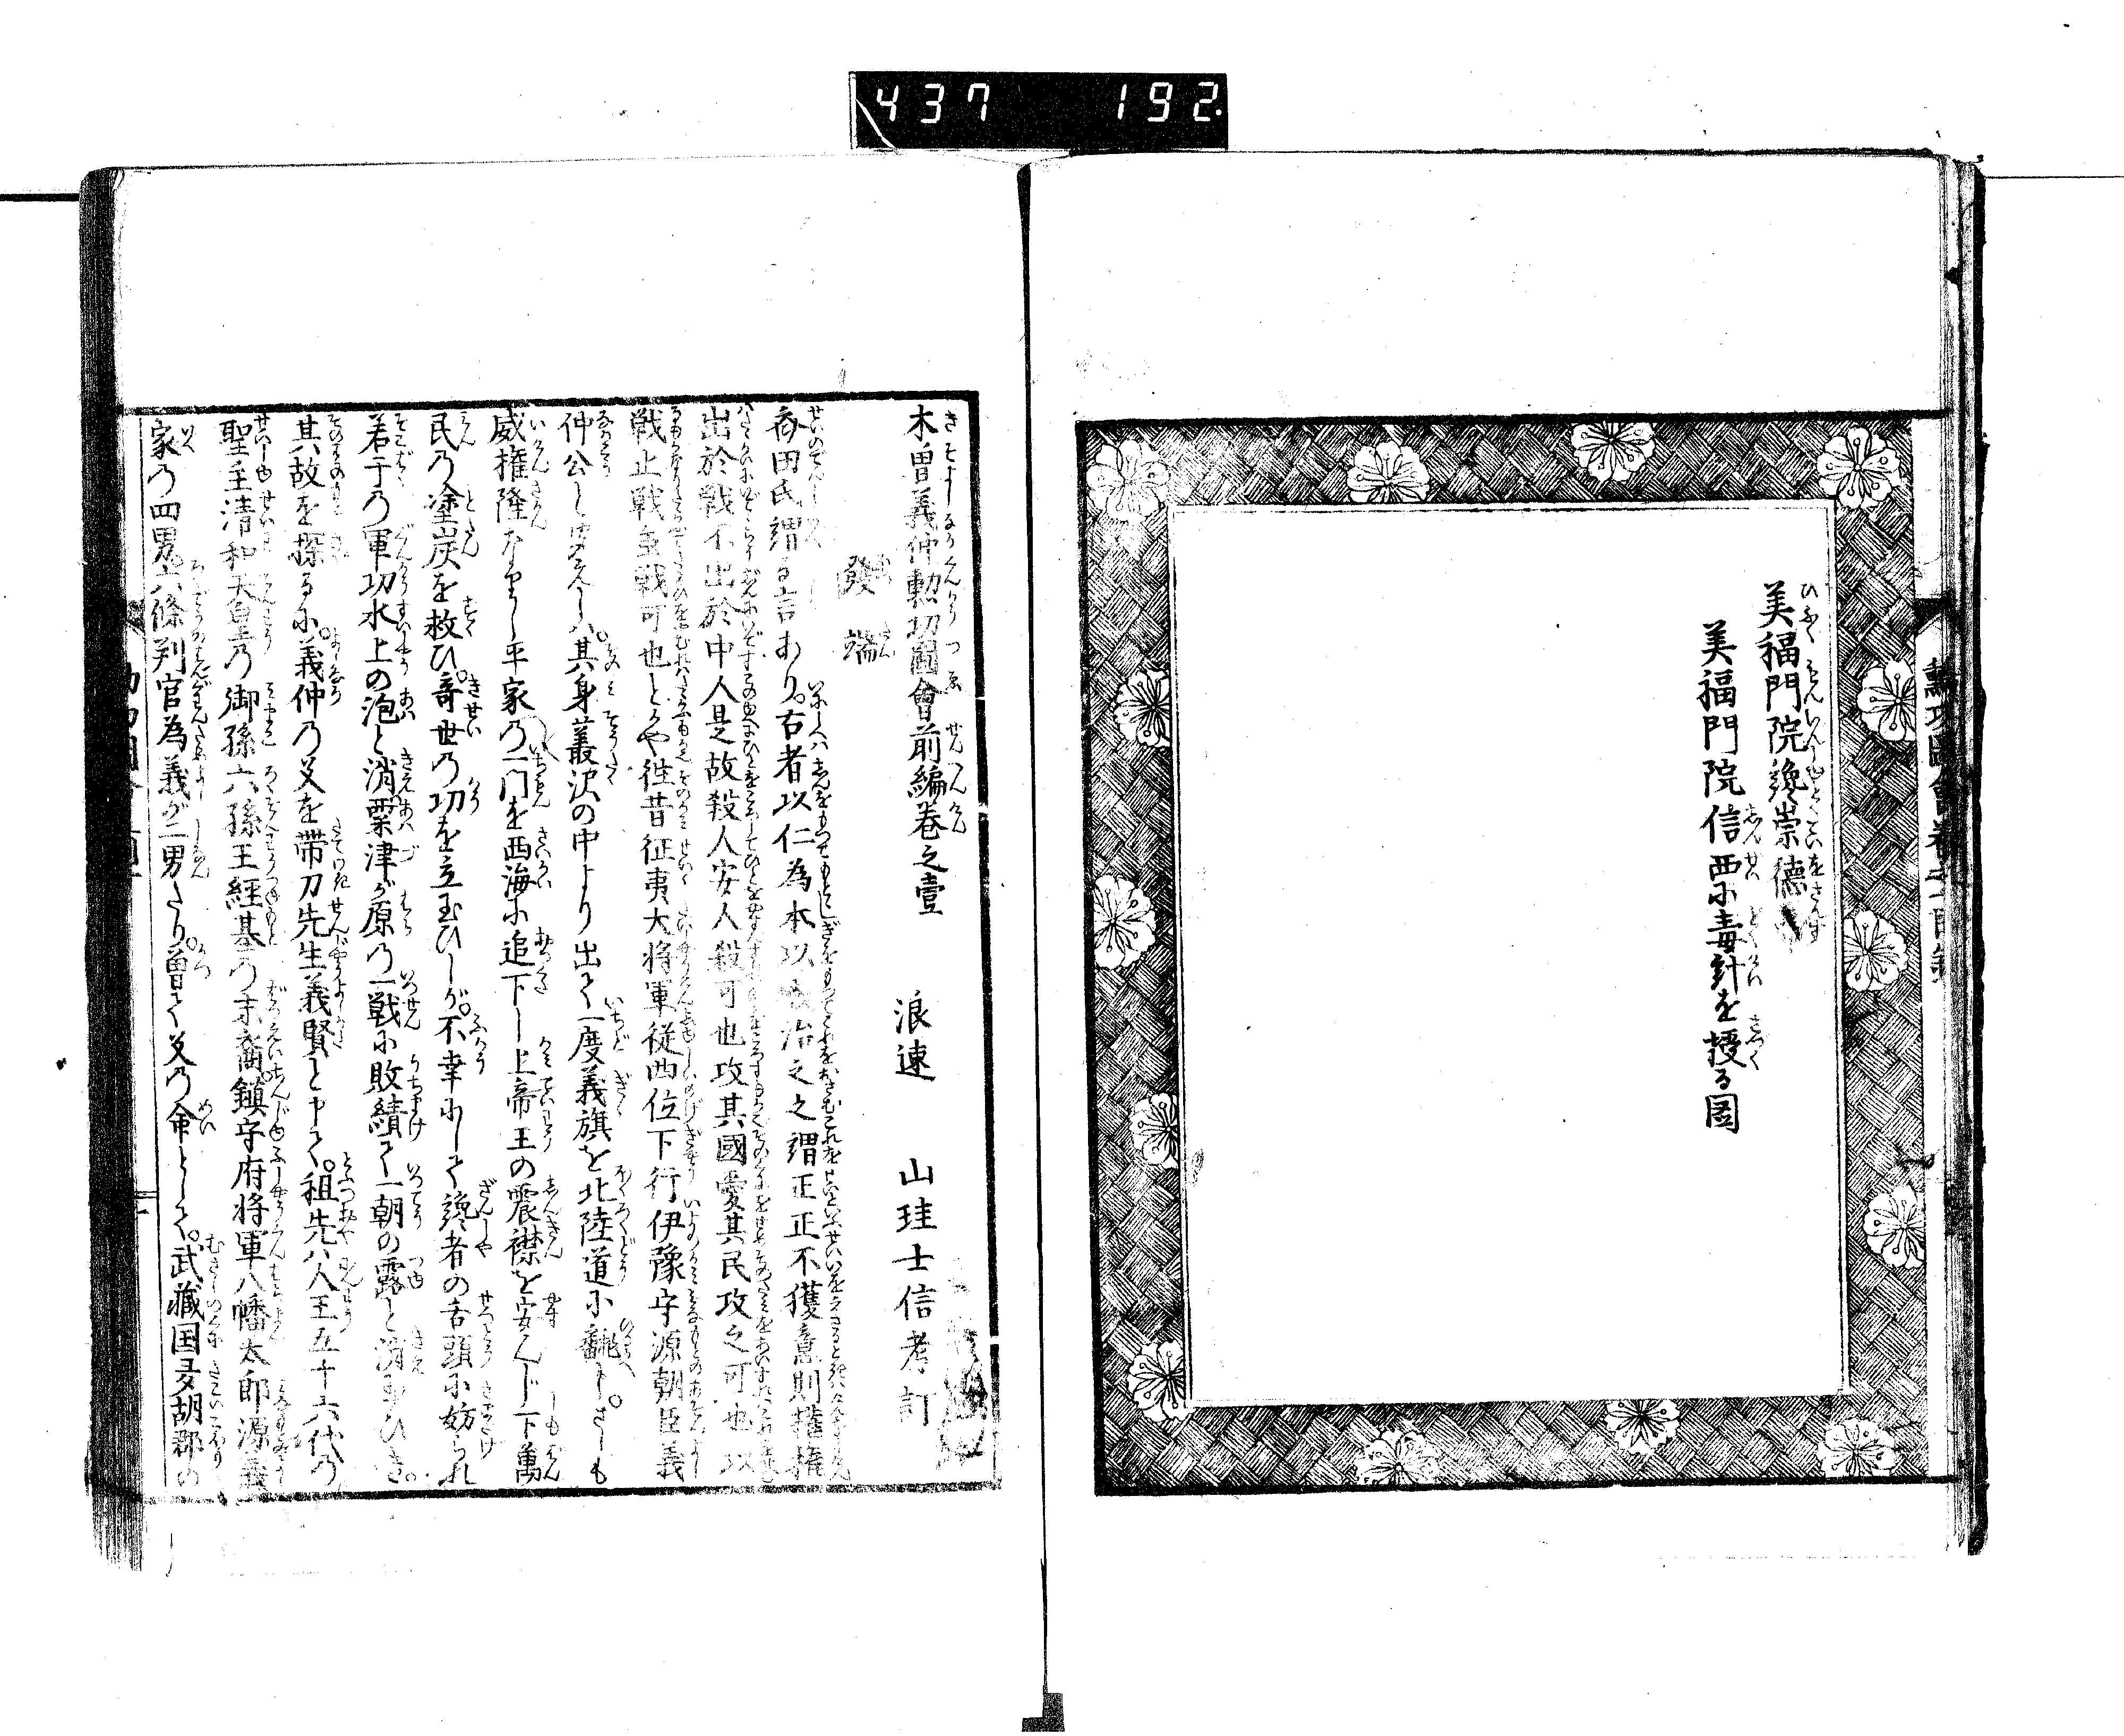 437 192
美福門院讒崇徳
美福門院信西尓毒計を授る圖
木曽義仲勲功圖會前編巻之壹 浪速 山珪士信考訂
發端
斉田氏謂る言あり。右者以仁為本以義治之之謂正正不獲意則權權
出於戦不出於中人是故殺人安人殺可也攻其國愛其民攻之可也以
戦止戦虽戦可也とかや往昔征夷大将軍従四位下行伊豫守源朝臣義
仲公と申奉るハ。其身叢沢の中より出て一度義旗を北陸道尓飜し。さしも
威権隆なりし平家の一門を西海尓追下し上帝王の震襟を安んじ下萬
民乃塗炭を救ひ。竒世乃功を立玉ひしが。不幸尓して讒者の舌頭尓妨られ
若干の軍功水上の泡と消粟津が原乃一戦尓敗績て一朝の露と消玉ひき。
其故を探る尓。義仲乃父を帯刀先生義賢と申て。祖先ハ人王五十六代乃
聖主清和天皇乃御孫六孫王経基の末裔。鎮守府将軍八幡太郎源義
家乃四男六條判官為義が二男たり。曽て父乃命として。武蔵国多胡郡の